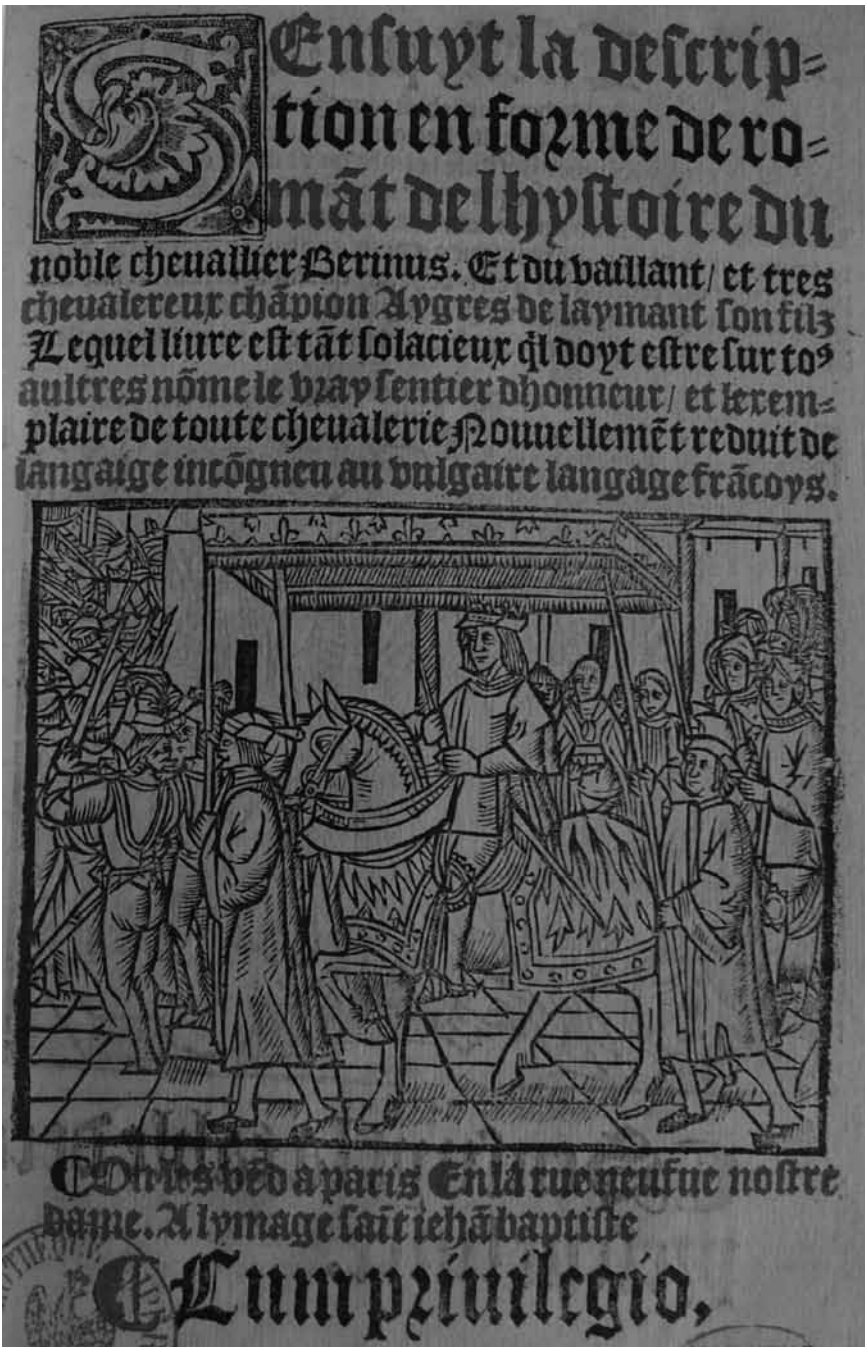 SEnsuyt la descrip=
tion en forme de ro=
mãt de lhystoire du
noble cheuallier Berinus. Et du vaillant/ et tres
cheualereux chãpion Aygres de laymant son filz
Lequel liure est tãt solacieux ql̃ doyt estre sur to⁹
aultres nõme le vray sentier dhonneur/ et lexem=
plaire de toute cheualerie Nouuellemẽt reduit de
langaige incõgneu au vulgaire langage frãcoys.
¶On les vẽd a paris En la rue neufue nostre
dame. A lymage saĩt iehã baptiste
¶Cum priuilegio.